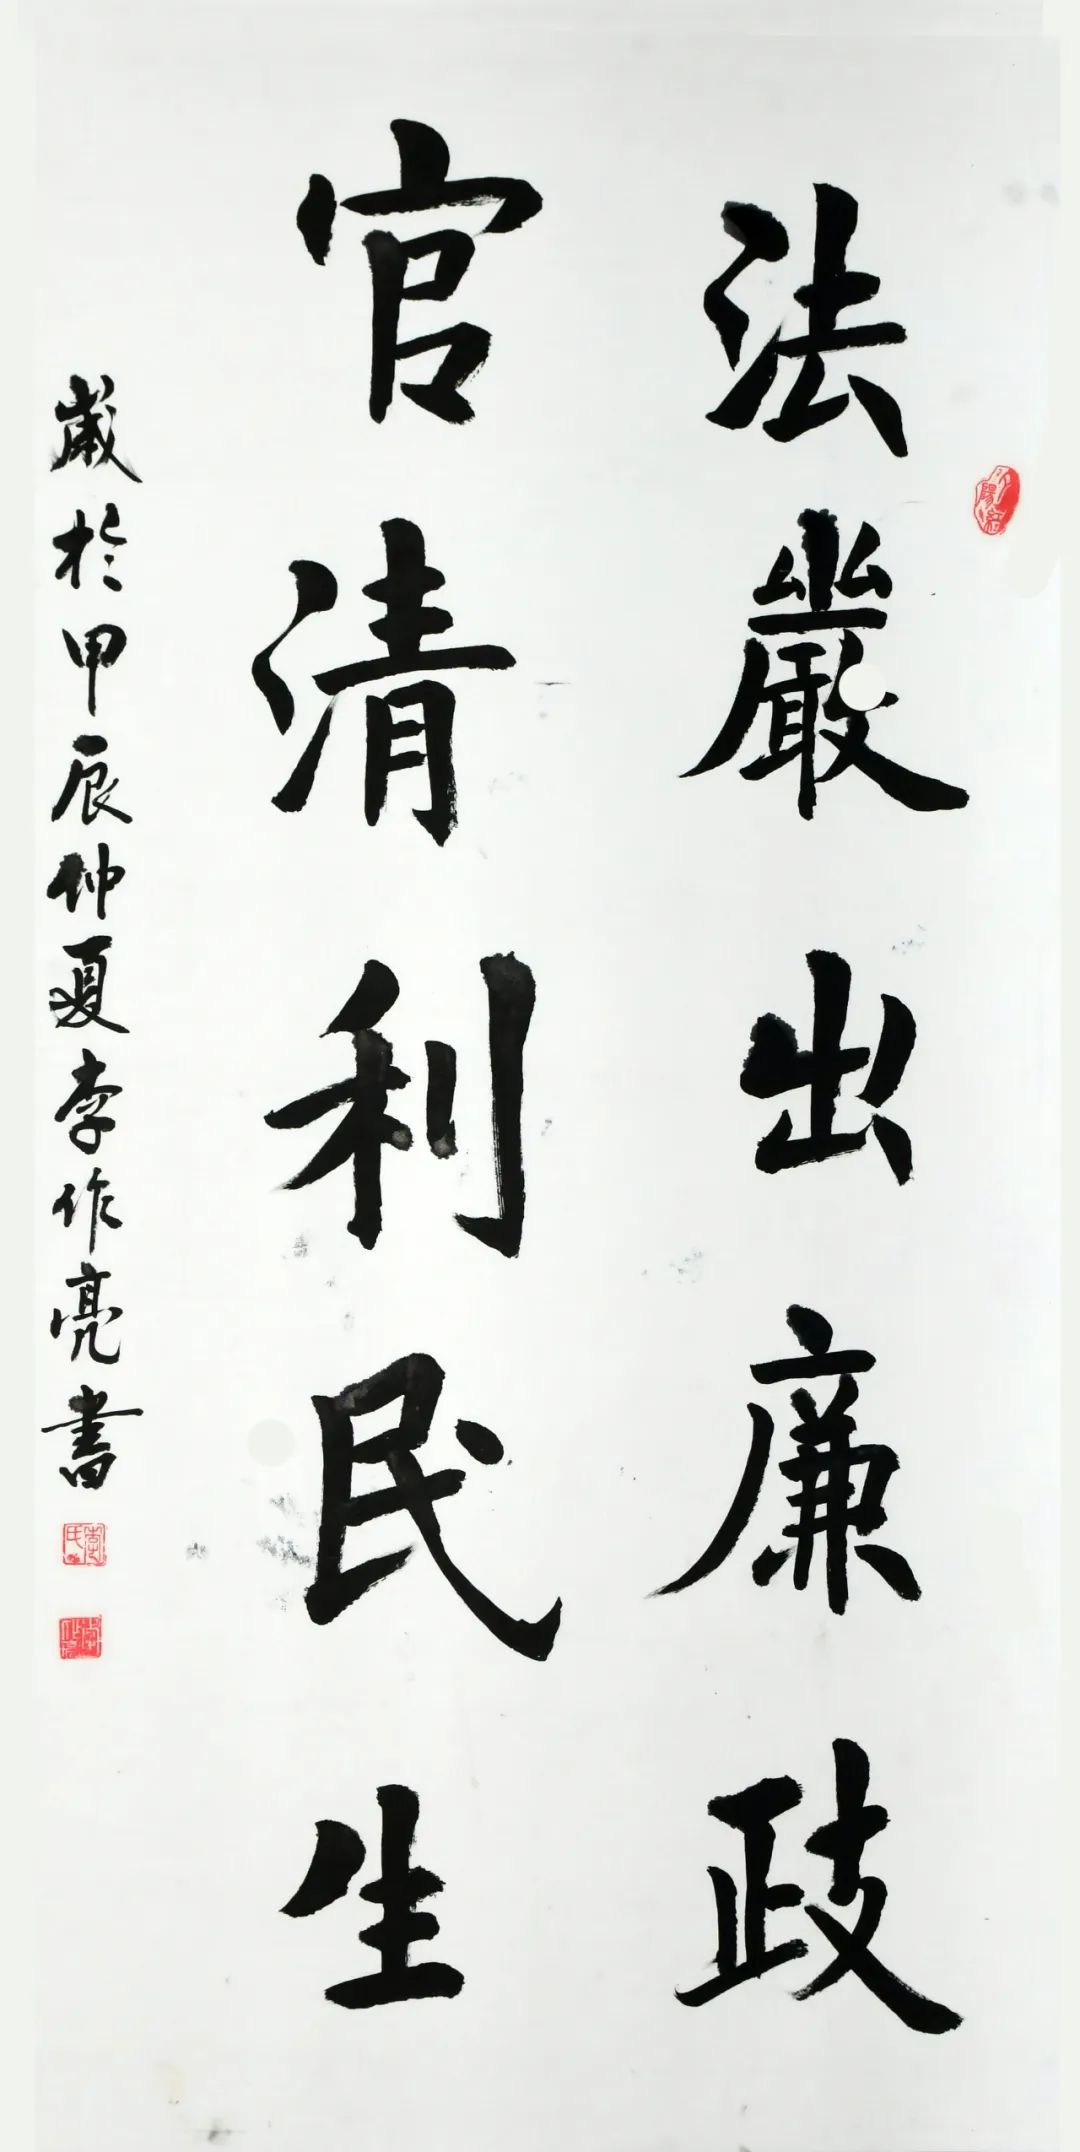 法嚴出廉政
官清利民生
歲於甲辰仲夏李作亮書